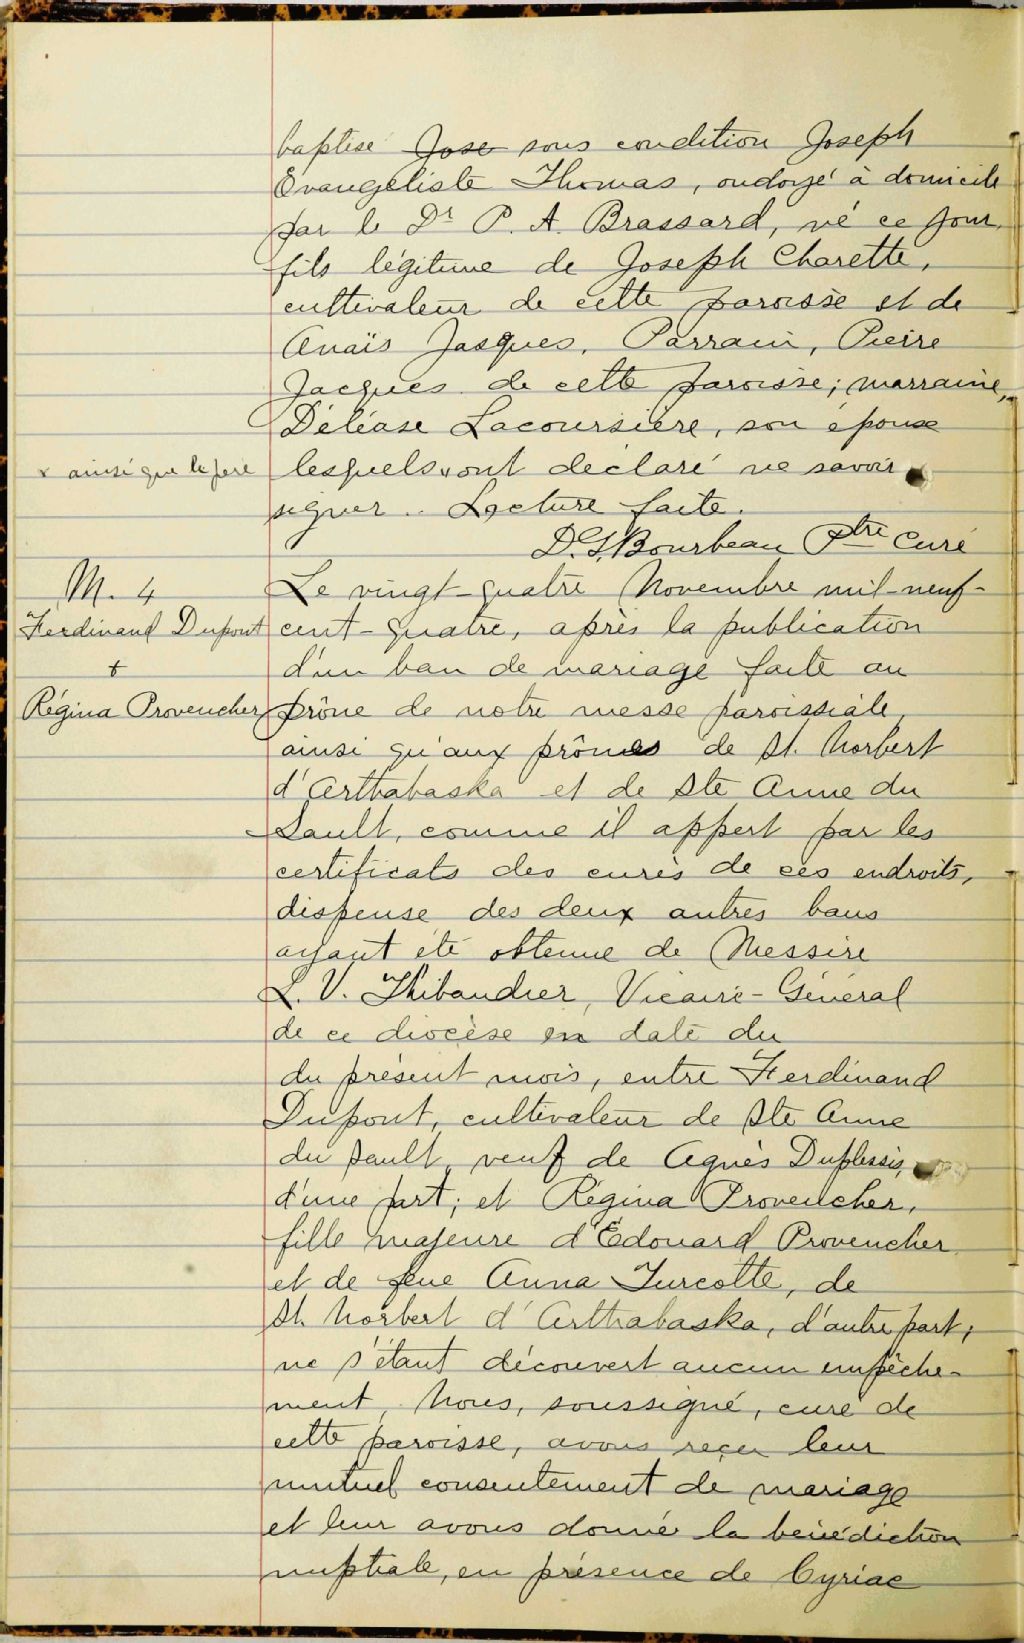 baptisé Jose sous condition Joseph
Evangéliste Thomas, ondoyé à domicile
par le Dr P. A. Brassard, né ce jour,
fils légitime de Joseph Charette,
cultivateur de cette paroisse et de
Anaïs Jacques, Parrain, Pierre
Jacques de cette paroisse; marraine,
Déléase Lacoursière, son épouse
x ainsi que le père
lesquels x ont déclaré ne savoir
signer. Lecture faite.
D. S. Bourbeau Ptre Curé
M. 4
Ferdinand Dupont
+
Régina Provencher
Le vingt-quatre Novembre mil-neuf-
cent-quatre, après la publication
d'un ban de mariage faite au
prône de notre messe paroissiale,
ainsi qu'aux prônes de St. Norbert
d'Arthabaska et de Ste Anne du
Sault, comme il appert par les
certificats des curés de ces endroits,
dispense des deux autres bans
ayant été obtenue de Messire
L. V. Thibaudier, Vicaire-Général
de ce diocèse en date du
du présent mois, entre Ferdinand
Dupont, cultivateur de Ste Anne
du Sault, veuf de Agnès Duplessis,
d'une part; et Régina Provencher,
fille majeure d'Edouard Provencher
et de feue Anna Turcotte, de
St. Norbert d'Arthabaska, d'autre part;
ne s'étant découvert aucun empêche-
ment, Nous, soussigné, curé de
cette paroisse, avons reçu leur
mutuel consentement de mariage
et leur avons donné la bénédiction
nuptiale, en présence de Cyriac